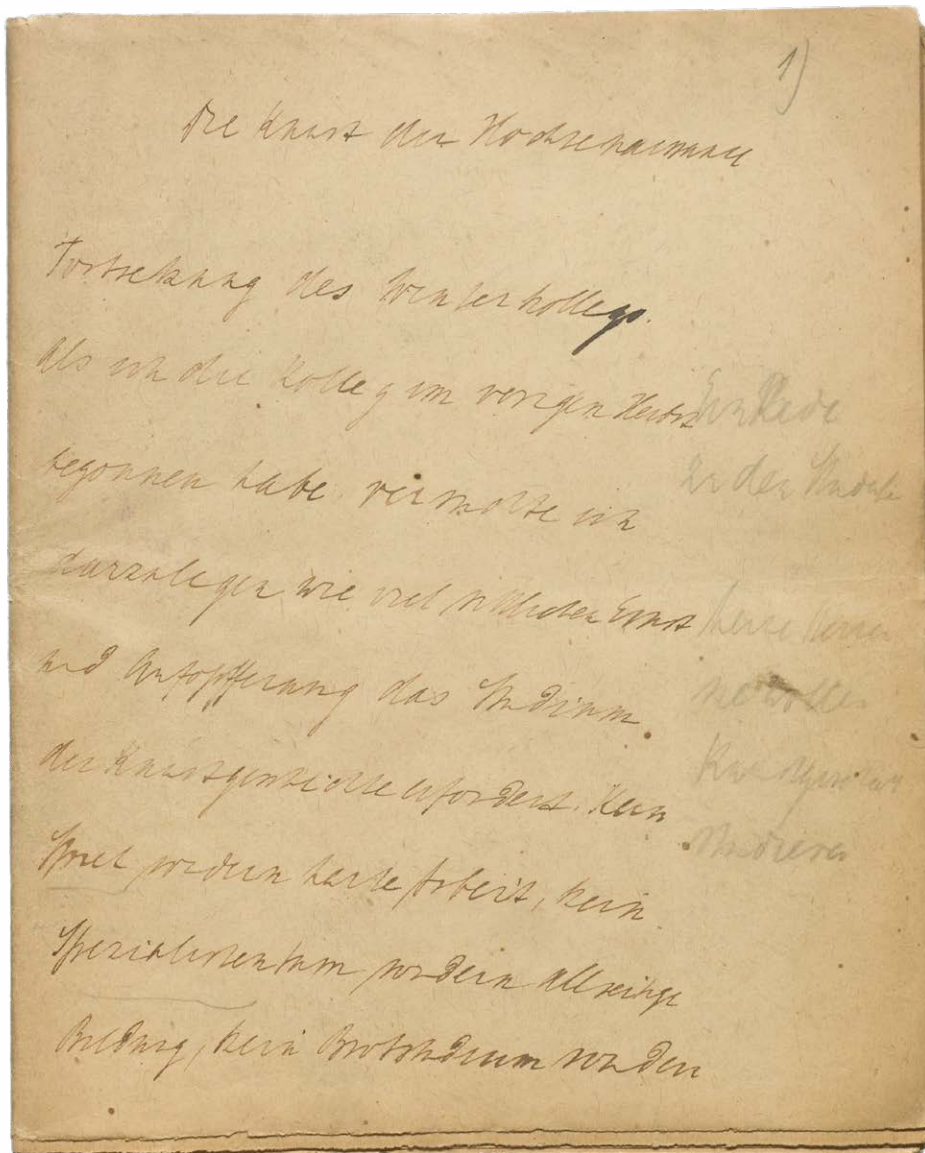 1)
Die Kunst der Hochrenaissance
Fortsetzung des Winterkollegs.
Als ich die Kolleg im vorigen Herbst
begonnen habe. versuchte ich
darzulegen wie viel sittlichen Ernst
und Aufopferung das Studium
der Kunstgeschichte erfordert. Kein
Spiel sondern harte Arbeit, kein
Spezialistentum sondern allseitige
Bildung, kein Brotstudium sondern
an der
Meine Herren
Sie wollen
Kunstgeschichte
studieren